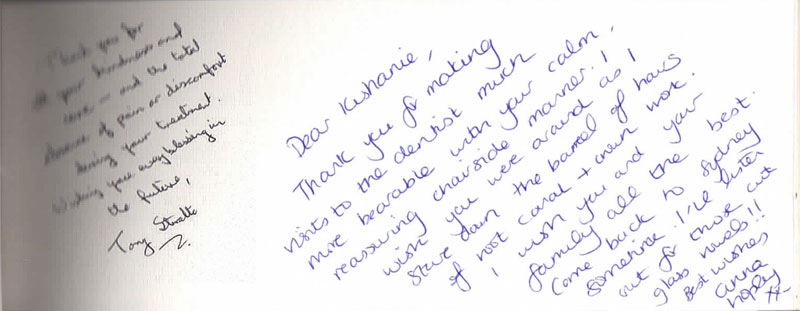 Thank you for
all your kindness and
care — and the total
absence of pain or discomfort
during your treatment.
Wishing you every blessing in
the future,
Tony
Dear Kushanie,
Thank you for making
visits to the dentist much
more bearable with your calm,
reassuring chairside manner. I
wish you were around as I
stare down the barrel of hours
of root canal + crown work.
I wish you and your
family all the best.
Come back to Sydney
sometime. I'll listen
out for those cut
glass vowels!!
Best wishes
anna
xx